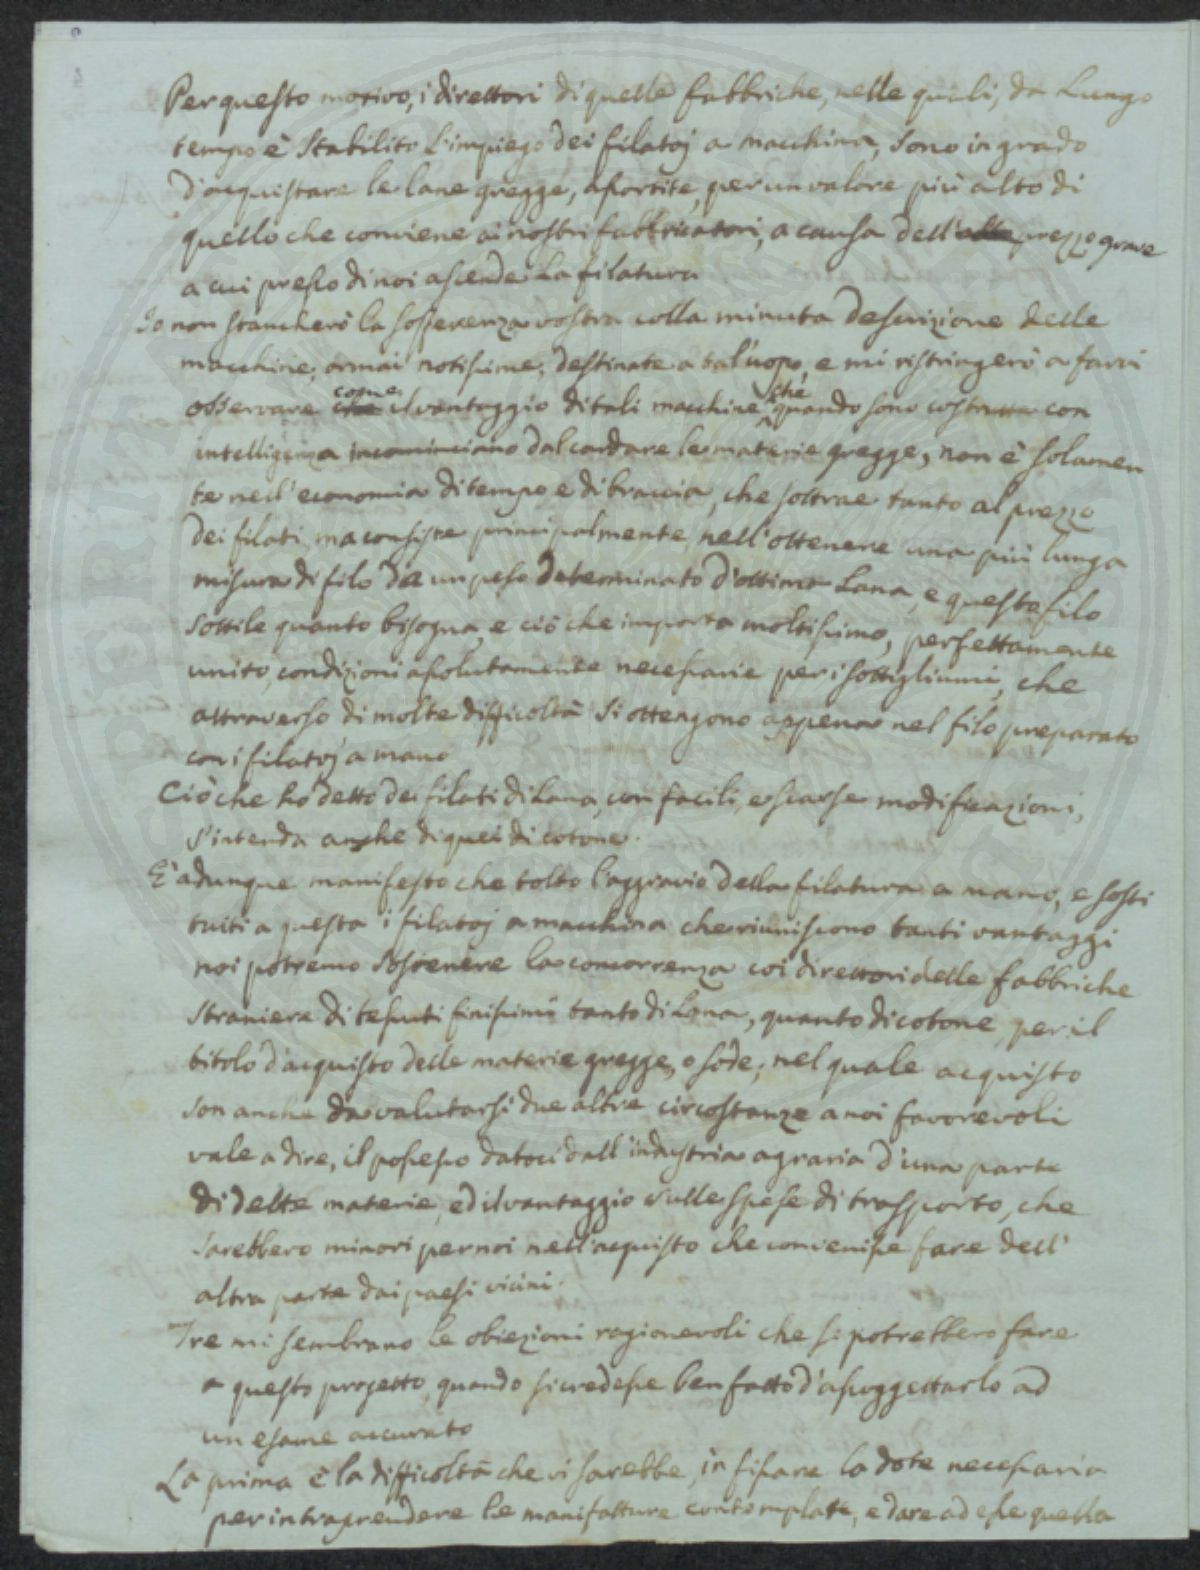 Per questo motivo, i direttori di quelle fabbriche, nelle quali, da Lungo
tempo è stabilito l'impiego dei filatoj a macchina, sono in grado
d'acquistare le lane gregge, assortite, per un valore più alto di
quello che conviene ai nostri fabbricatori, a causa dell' prezzo grave
a cui presso di noi ascende la filatura
Io non stancherò la sofferenza vostra colla minuta descrizione delle
macchine, ormai notissime, destinate a tal'uopo, e mi ristringerò a farvi
osservare come il vantaggio di tali macchine, ché quando sono costrutte con
intelligenza incominciano dal cardare le materie gregge, non è solamen
te nell'economia di tempo e di braccia, che sottrae tanto al prezzo
dei filati, ma consiste principalmente nell'ottenere una più lunga
misura di filo da un peso determinato d'ottima Lana, e questo filo
sottile quanto bisogna, e ciò che importa moltissimo, perfettamente
unito, condizioni assolutamente necessarie per i sottigliumi, che
attraverso di molte difficoltà si ottengono appena nel filo preparato
con i filatoj a mano
Ciò che ho detto dei filati di Lana, con facili, e scarse modificazioni,
s'intenda anche di quei di cotone.
E' adunque manifesto che tolto l'aggravio della filatura a mano, e sosti
tuiti a questa i filatoj a macchina che riuniscono tanti vantaggi
noi potremo sostenere la concorrenza coi direttori delle fabbriche
straniere di tessuti finissimi tanto di Lana, quanto di cotone, per il
titolo d'acquisto delle materie gregge, o sode; nel quale acquisto
son anche da valutarsi due altre circostanze a noi favorevoli
vale a dire, il possesso datoci dall'industria agraria d'una parte
di dette materie, ed il vantaggio sulle spese di trasporto, che
sarebbero minori per noi nell'acquisto che convenisse fare dell'
altra parte dai paesi vicini.
Tre mi sembrano le obiezioni ragionevoli che si potrebbero fare
a questo progetto, quando si credesse ben fatto d'assoggettarlo ad
un esame accurato
La prima è la difficoltà che vi sarebbe, in fissare la dote necessaria
per intraprendere le manifatture contemplate, e dare ad esse quella